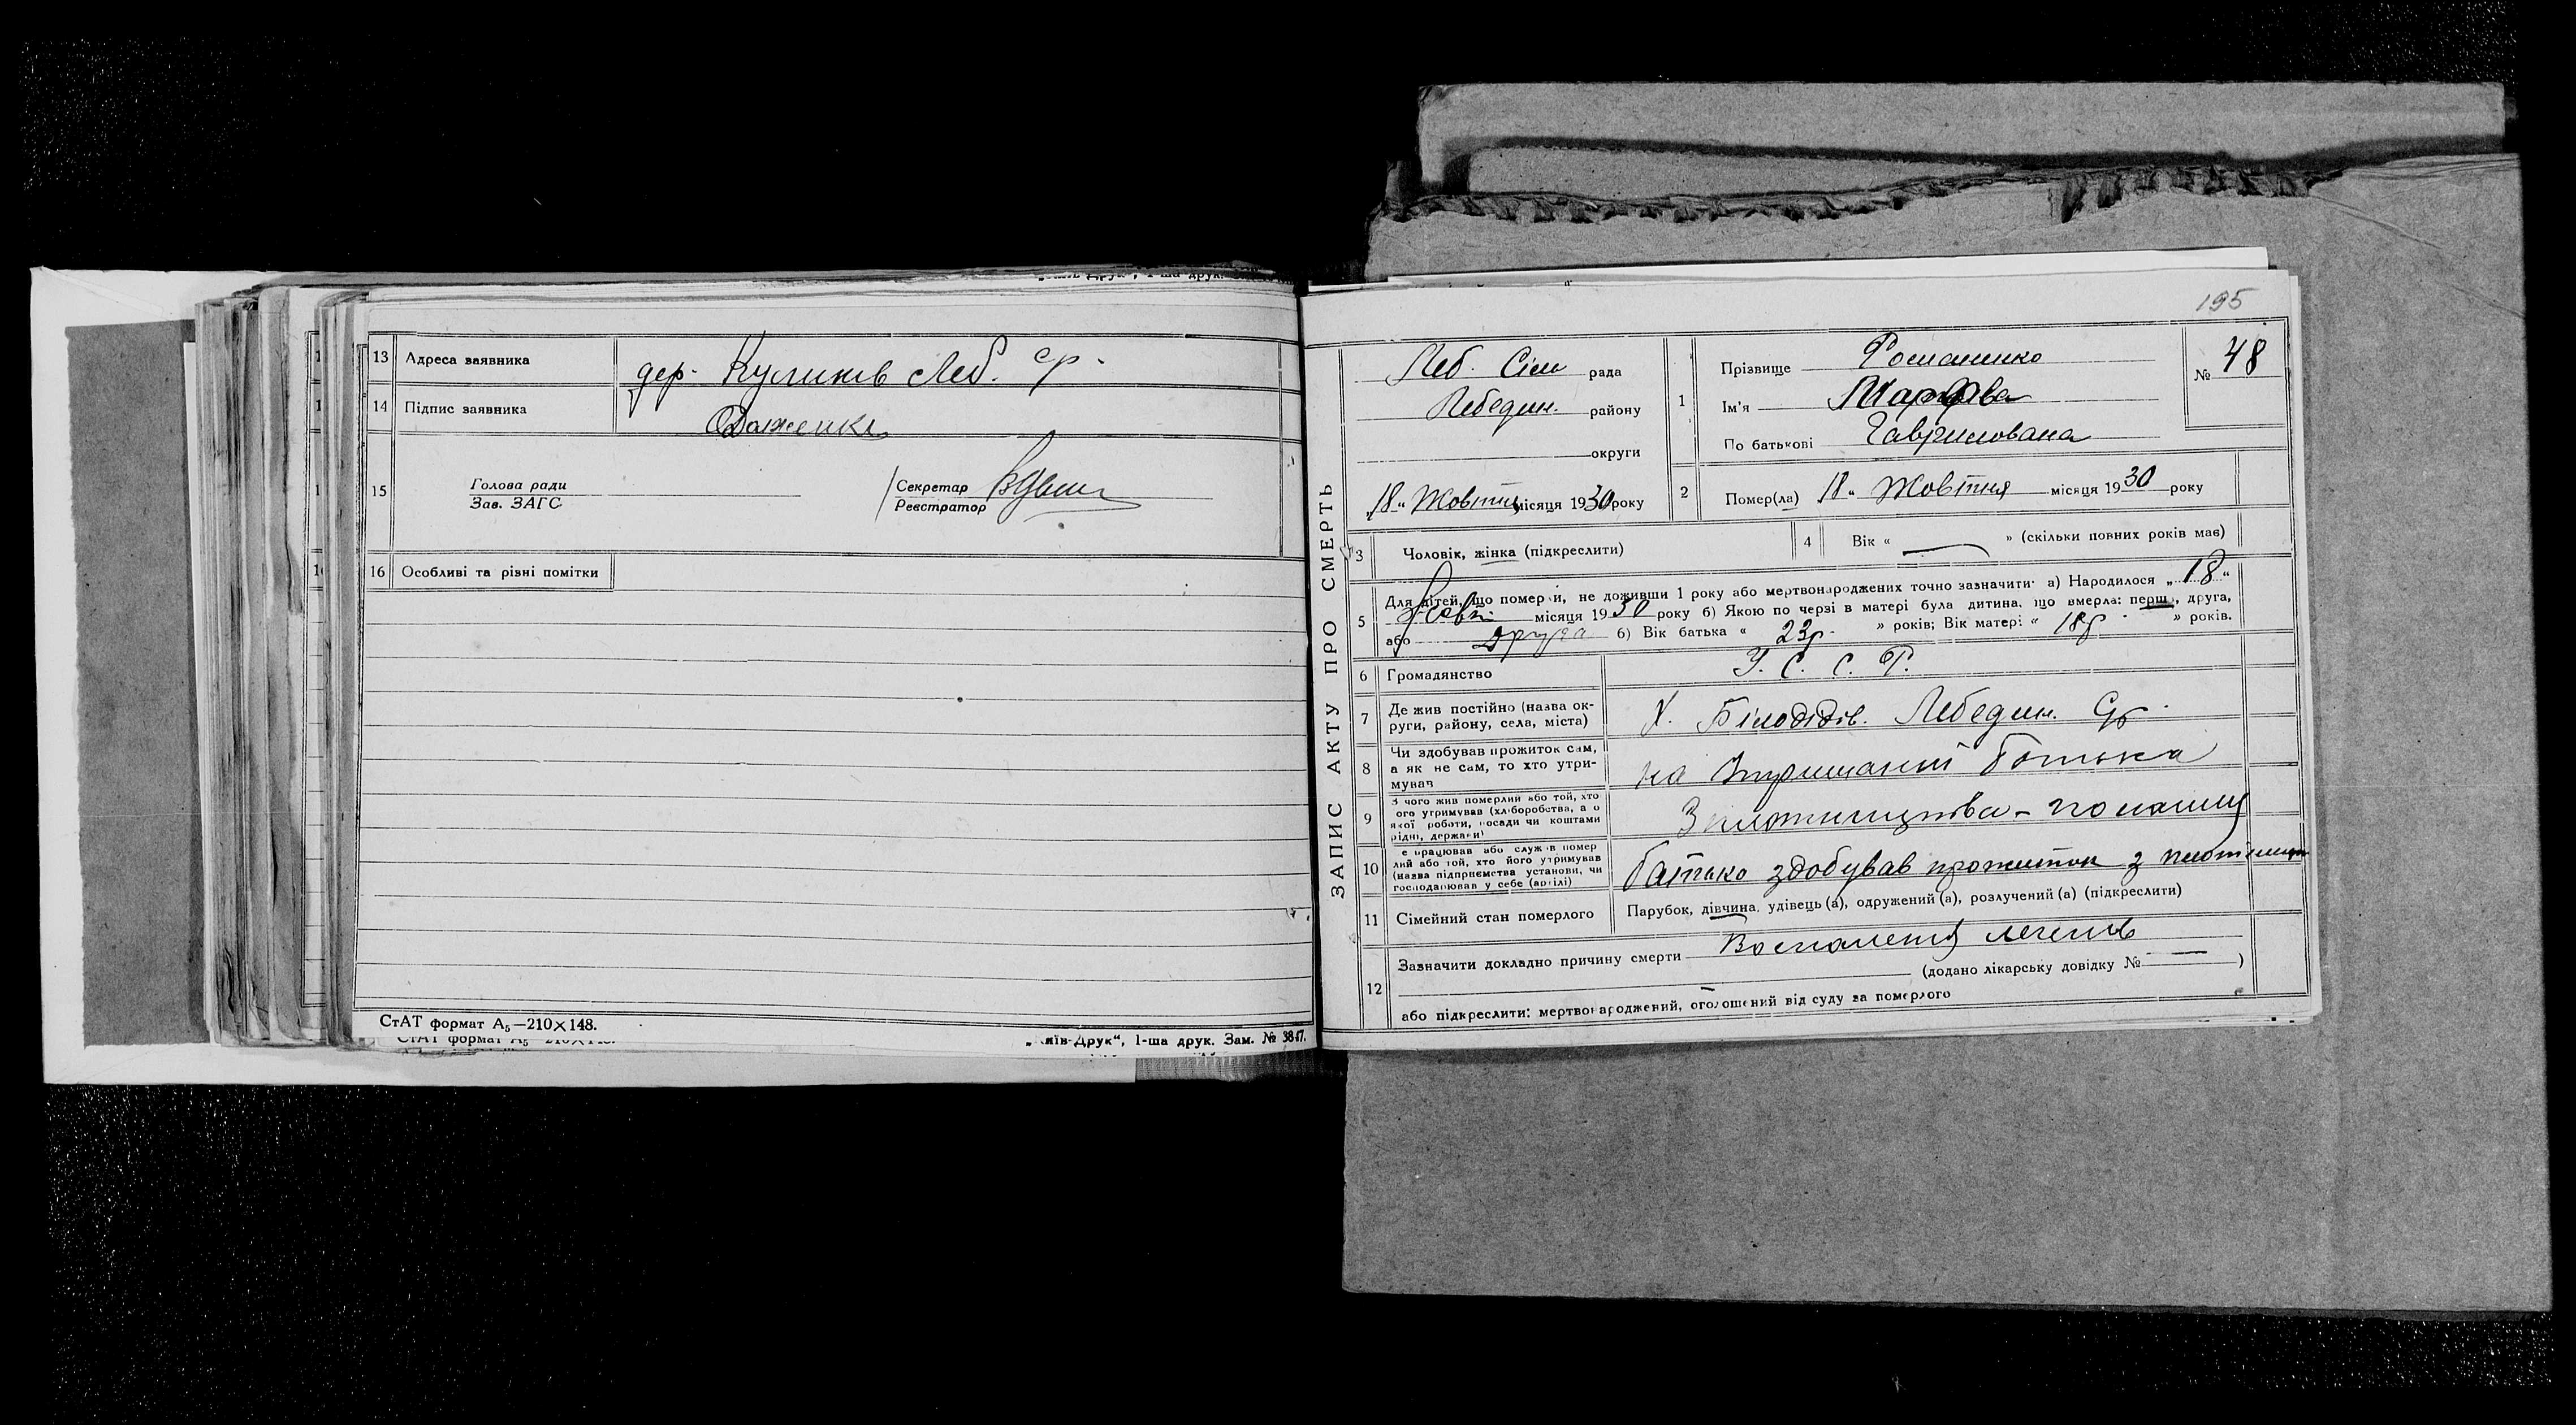 13 Адреса заявника дер. Куликів Леб. ср.
14 Підпис заявника
15 Голова ради
Зав. ЗАГС
Секретар
Реєстратор
16 Особливі та різні помітки
СтАТ формат А₅—210×148.
1-ша друк. Зам. № 3847.
195
ЗАПИС АКТУ ПРО СМЕРТЬ
Леб. Сіль рада
Лебедин. району
округи
„18“ Жовтня місяця 1930 року
1 Прізвище Романенко
Ім'я Марфа
По батькові Гаврилована
№ 48
2 Помер(ла) 18 „ Жовтня місяця 1930 року
3 Чоловік, жінка (підкреслити)
4 Вік « — » (скільки повних років має)
5 Для дітей, що померли, не доживши 1 року або мертвонароджених точно зазначити: а) Народилося „ 18 “
Жовт місяця 1930 року б) Якою по черзі в матері була дитина, що вмерла: перша, друга,
або друга б) Вік батька « 23р. » років; Вік матері « 18р. » років.
6 Громадянство У. С. С. Р.
7 Де жив постійно (назва ок-
руги, району, села, міста)
Х. Білодідів. Лебедин. Ср.
8 Чи здобував прожиток сам,
а як не сам, то хто утри-
мував
на Утриманні батька
9 З чого жив померлий або той, хто
його утримував (хліборобства, а о
якої роботи, посади чи коштами
рідні, держави)
10 Де працював або служив помер
лий або той, хто його утримував
(назва підприємства установи, чи
господарював у себе (артілі)
батько здобував прожиток з
11 Сімейний стан померлого Парубок, дівчина, удівець (а), одружений (а), розлучений (а) (підкреслити)
12 Зазначити докладно причину смерти Воспаления легенів
(додано лікарську довідку № — )
або підкреслити: мертвонароджений, оголошений від суду за померлого